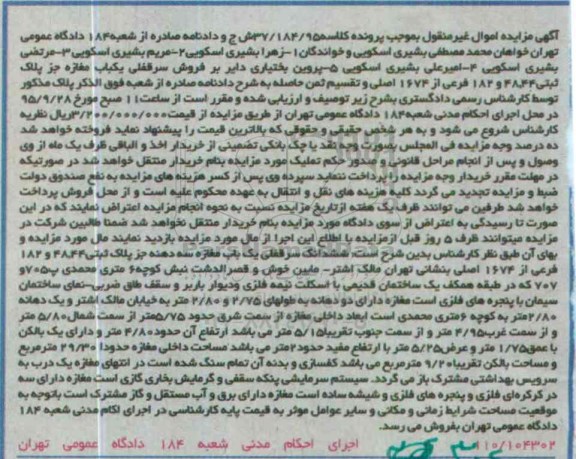 آگهی مزایده اموال غیرمنقول بموجب پرونده کلاسه ۳۷/۱۸۴/۹۵ش ج و دادنامه صادره از شعبه۱۸۴ دادگاه عمومی
تهران خواهان محمد مصطفی بشیری اسکویی و خواندگان ۱-زهرا بشیری اسکویی۲-مریم بشیری اسکویی۳-مرتضی
بشیری اسکویی ۴-امیرعلی بشیری اسکویی ۵-پروین بختیاری دایر بر فروش سرقفلی یکباب مغازه جز پلاک
ثبتی۴۸،۴۴ و ۱۸۲ فرعی از ۱۶۷۴ اصلی و تقسیم ثمن حاصله به شرح دادنامه صادره از شعبه فوق الذکر پلاک مذکور
توسط کارشناس رسمی دادگستری بشرح زیر توصیف و ارزیابی شده و مقرر است از ساعت۱۱ صبح مورخ ۹۵/۹/۲۸
در محل اجرای احکام مدنی شعبه۱۸۴ دادگاه عمومی تهران از طریق مزایده از قیمت۳/۰۰۰/۰۰۰/۰۰۰ریال نظریه
کارشناس شروع می شود و به هر شخص حقیقی و حقوقی که بالاترین قیمت را پیشنهاد نماید فروخته خواهد شد
ده درصد وجه مزایده فی المجلس بصورت وجه نقد یا چک بانکی تضمینی از خریدار اخذ و الباقی ظرف یک ماه از وی
وصول و پس از انجام مراحل قانونی و صدور حکم تملیک مورد مزایده بنام خریدار منتقل خواهد شد در صورتیکه
در مهلت مقرر خریدار وجه مزایده را پرداخت ننماید سپرده وی پس از کسر هزینه های مزایده به نفع صندوق دولت
ضبط و مزایده تجدید می گردد کلیه هزینه های نقل و انتقال به عهده محکوم علیه است و از محل فروش پرداخت
خواهد شد طرفین می توانند ظرف یک هفته ازتاریخ مزایده نسبت به نحوه انجام مزایده اعتراض نمایند که در این
صورت تا رسیدگی به اعتراض از سوی دادگاه مورد مزایده بنام خریدار منتقل نخواهد شد ضمنا طالبین شرکت در
مزایده میتوانند ظرف ۵ روز قبل ازمزایده با اطلاع این اجرا از مال مورد مزایده بازدید نمایند مال مورد مزایده و
بهای آن طبق نظر کارشناس بدین شرح است ششدانگ سرقفلی یک باب مغازه سه دهنه جز پلاک ثبتی۴۸،۴۴ و ۱۸۲
فرعی از ۱۶۷۴ اصلی بنشانی تهران مالک اشتر- مابین خوش و قصرالدشت نبش کوچه۶ متری محمدی پ۷۰۵و
۷۰۷ که در طبقه همکف یک ساختمان قدیمی با اسکلت نیمه فلزی ودیوار باربر و سقف طاق ضربی-نمای ساختمان
سیمان با پنجره های فلزی است مغازه دارای دو دهانه به طولهای ۲/۷۵ و ۲/۸۰ متر به خیابان مالک اشتر و یک دهانه
۲/۸۰متر به کوچه ۶متری محمدی است ابعاد داخلی مغازه از سمت شرق حدود ۵/۷۵متر از سمت شمال۵/۸۰ متر
و از سمت غرب۴/۹۵ متر و از سمت جنوب تقریبا۵/۱۵ متر می باشد ارتفاع آن حدود۴/۸۰ متر و دارای یک بالکن
با عمق۱/۷۵ متر و عرض۵/۲۵ متر با ارتفاع مفید حدود۲متر می باشد مساحت داخلی مغازه حدودا ۲۹/۳۰ مترمربع
و مساحت بالکن تقریبا۹/۲۰ مترمربع می باشد کفسازی و بدنه آن تمام سنگ شده است در انتهای مغازه یک درب به
سرویس بهداشتی مشترک باز می گردد. سیستم سرمایشی پنکه سقفی و گرمایش بخاری گازی است مغازه دارای سه
در کرکره‌ای فلزی و پنجره های فلزی و شیشه ساده است مغازه دارای برق و آب مستقل و گاز مشترک است باتوجه به
موقعیت مساحت شرایط زمانی و مکانی و سایر عوامل موثر به قیمت پایه کارشناسی در اجرای احکام مدنی شعبه ۱۸۴
دادگاه عمومی تهران بفروش می رسد.
۱۱۰/۱۰۴۳۰۲ اجرای احکام مدنی شعبه ۱۸۴ دادگاه عمومی تهران